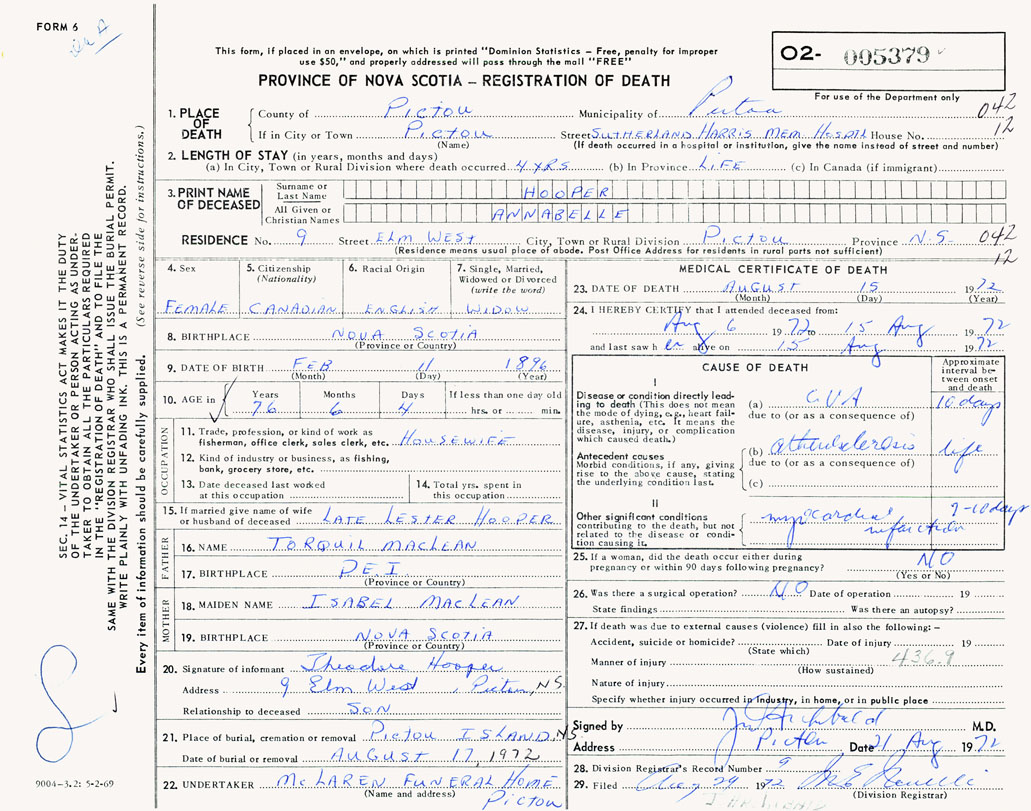 FORM 6
This form, if placed in an envelope, on which is printed "Dominion Statistics – Free, penalty for improper
use $50," and properly addressed will pass through the mail "FREE"
PROVINCE OF NOVA SCOTIA – REGISTRATION OF DEATH
02- 005379
For use of the Department only
042
12
1. PLACE OF DEATH
County of Pictou Municipality of Pictou
If in City or Town Pictou Street SUTHERLAND HARRIS MEM. HOSPITAL House No.
(Name) (If death occurred in a hospital or institution, give the name instead of street and number)
2. LENGTH OF STAY (in years, months and days)
(a) In City, Town or Rural Division where death occurred 4 YRS (b) In Province LIFE (c) In Canada (if immigrant)
3. PRINT NAME OF DECEASED
Surname or Last Name HOOPER
All Given or Christian Names ANNABELLE
RESIDENCE No. 9 Street ELM WEST City, Town or Rural Division PICTOU Province N.S. 042
(Residence means usual place of abode. Post Office Address for residents in rural parts not sufficient) 12
4. Sex
FEMALE
5. Citizenship (Nationality)
CANADIAN
6. Racial Origin
ENGLISH
7. Single, Married, Widowed or Divorced (write the word)
WIDOW
8. BIRTHPLACE NOVA SCOTIA
(Province or Country)
9. DATE OF BIRTH FEB 11 1896
(Month) (Day) (Year)
10. AGE in Years Months Days If less than one day old
76 6 4 hrs. or min.
OCCUPATION
11. Trade, profession, or kind of work as
fisherman, office clerk, sales clerk, etc. HOUSEWIFE
12. Kind of industry or business, as fishing,
bank, grocery store, etc.
13. Date deceased last worked
at this occupation
14. Total yrs. spent in
this occupation
15. If married give name of wife
or husband of deceased LATE LESTER HOOPER
FATHER
16. NAME TORQUIL MACLEAN
17. BIRTHPLACE P.E.I
(Province or Country)
MOTHER
18. MAIDEN NAME ISABEL MACLEAN
19. BIRTHPLACE NOVA SCOTIA
(Province or Country)
20. Signature of informant Theodore Hooper
Address 9 Elm West, Pictou, N.S.
Relationship to deceased SON
21. Place of burial, cremation or removal PICTOU ISLAND, NS
Date of burial or removal AUGUST 17, 1972
22. UNDERTAKER MCLAREN FUNERAL HOME
(Name and address) PICTOU
MEDICAL CERTIFICATE OF DEATH
23. DATE OF DEATH AUGUST 15 1972
(Month) (Day) (Year)
24. I HEREBY CERTIFY that I attended deceased from:
Aug 6 1972 to 15 Aug 1972
and last saw her alive on 15 Aug 1972
CAUSE OF DEATH
Approximate interval between onset and death
I
Disease or condition directly lead-
ing to death (This does not mean
the mode of dying, e.g., heart fail-
ure, asthenia, etc. It means the
disease, injury, or complication
which caused death.)
(a) CVA 10 days
due to (or as a consequence of)
Antecedent causes
Morbid conditions, if any, giving
rise to the above cause, stating
the underlying condition last.
(b) atherosclerosis life
due to (or as a consequence of)
(c)
II
Other significant conditions
contributing to the death, but not
related to the disease or condi-
tion causing it.
myocardial infarction 9-10 days
25. If a woman, did the death occur either during
pregnancy or within 90 days following pregnancy? NO
(Yes or No)
26. Was there a surgical operation? NO Date of operation 19
State findings Was there an autopsy?
27. If death was due to external causes (violence) fill in also the following:–
Accident, suicide or homicide? Date of injury 19
(State which)
436.9
Manner of injury
(How sustained)
Nature of injury
Specify whether injury occurred in industry, in home, or in public place
Signed by Archibald M.D.
Address Pictou Date 21 Aug 1972
28. Division Registrar's Record Number 9
29. Filed Aug 29 1972
(Division Registrar)
SEC. 14 – VITAL STATISTICS ACT MAKES IT THE DUTY
OF THE UNDERTAKER OR PERSON ACTING AS UNDER-
TAKER TO OBTAIN ALL THE PARTICULARS REQUIRED
IN THE "REGISTRATION OF DEATH" AND TO FILE THE
SAME WITH THE DIVISION REGISTRAR WHO SHALL ISSUE THE BURIAL PERMIT.
WRITE PLAINLY WITH UNFADING INK. THIS IS A PERMANENT RECORD.
Every item of information should be carefully supplied. (See reverse side for instructions.)
9004-3.2: 5-2-69